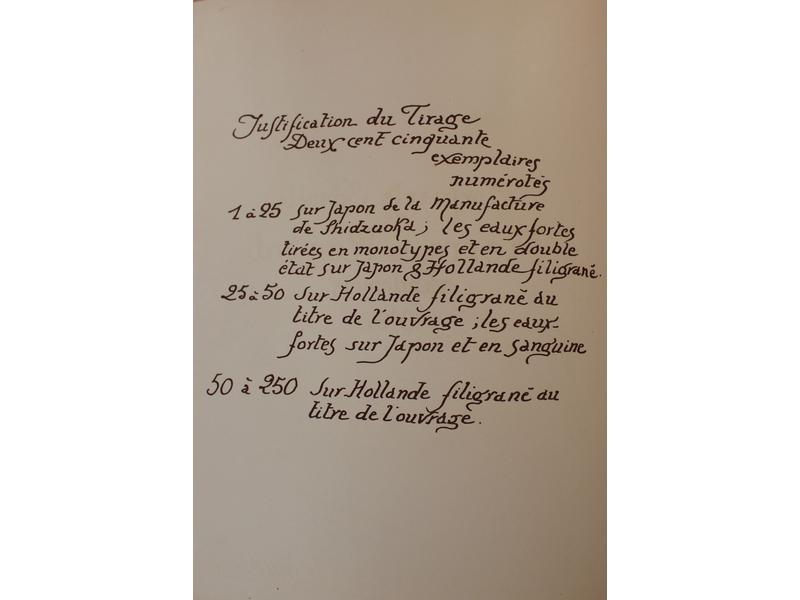 Justification du Tirage
Deux cent cinquante
exemplaires
numérotés
1 à 25 sur Japon de la Manufacture
de Shidzuoka; les eaux fortes
tirées en monotypes et en double
état sur Japon & Hollande filigrané.
25 à 50 Sur Hollande filigrané au
titre de l'ouvrage ; les eaux-
fortes sur Japon et en sanguine
50 à 250 Sur Hollande filigrané au
titre de l'ouvrage.